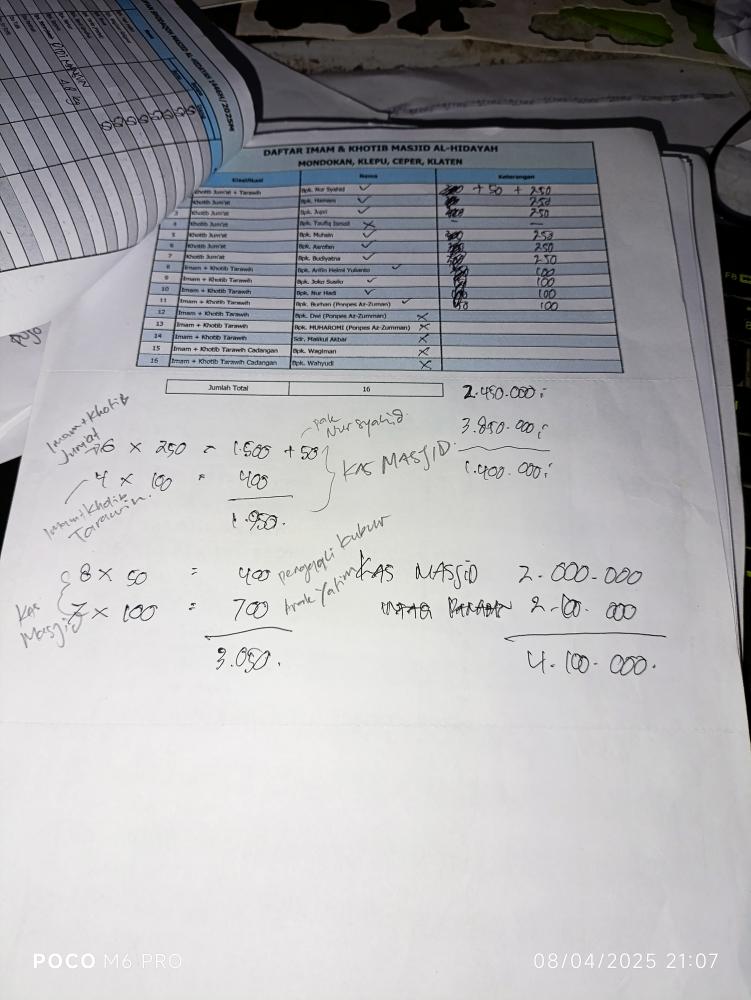 DAFTAR IMAM & KHOTIB MASJID AL-HIDAYAH
MONDOKAN, KLEPU, CEPER, KLATEN
Klasifikasi Nama Keterangan
Khotib Jum'at + Tarawih Bpk. Nur Syahid ✓ + 50 + 250
Khotib Jum'at Bpk. ✓ 250
3 Khotib Jum'at Bpk. Jupri ✓ 250
4 Khotib Jum'at Bpk. Taufiq Ismail × - -
5 Khotib Jum'at Bpk. Muhsin ✓ 250
6 Khotib Jum'at Bpk. ✓ 250
7 Khotib Jum'at Bpk. Budiyatna ✓ 250
8 Imam + Khotib Tarawih Bpk. Arifin Helmi Yulianto ✓ 100
9 Imam + Khotib Tarawih Bpk. Joko Susilo ✓ 100
10 Imam + Khotib Tarawih Bpk. Nur Hadi ✓ 100
11 Imam + Khotib Tarawih Bpk. Burhan (Ponpes Az-Zuman) ✓ 100
12 Imam + Khotib Tarawih Bpk. Dwi (Ponpes Az-Zumman) ×
13 Imam + Khotib Tarawih Bpk. MUHAROMI (Ponpes Az-Zumman) ×
14 Imam + Khotib Tarawih Sdr. Malikul Akbar ×
15 Imam + Khotib Tarawih Cadangan Bpk. Wagiman ×
16 Imam + Khotib Tarawih Cadangan Bpk. Wahyudi ×
Jumlah Total 16
2.450.000;
3.850.000;
1.400.000;
Imam+Khotib
Jumat
6 × 250 = 1.500 + 50
pak Nur Syahid
4 × 100 = 400
Imam+Khotib
Tarawih.
1.950.
KAS MASJID
8 × 50 = 400 penggali kubur
7 × 100 = 700 Anak Yatim
Kas
Masjid
3.050.
KAS MASJID 2.000.000
2.100.000
4.100.000.
POCO M6 PRO
08/04/2025 21:07